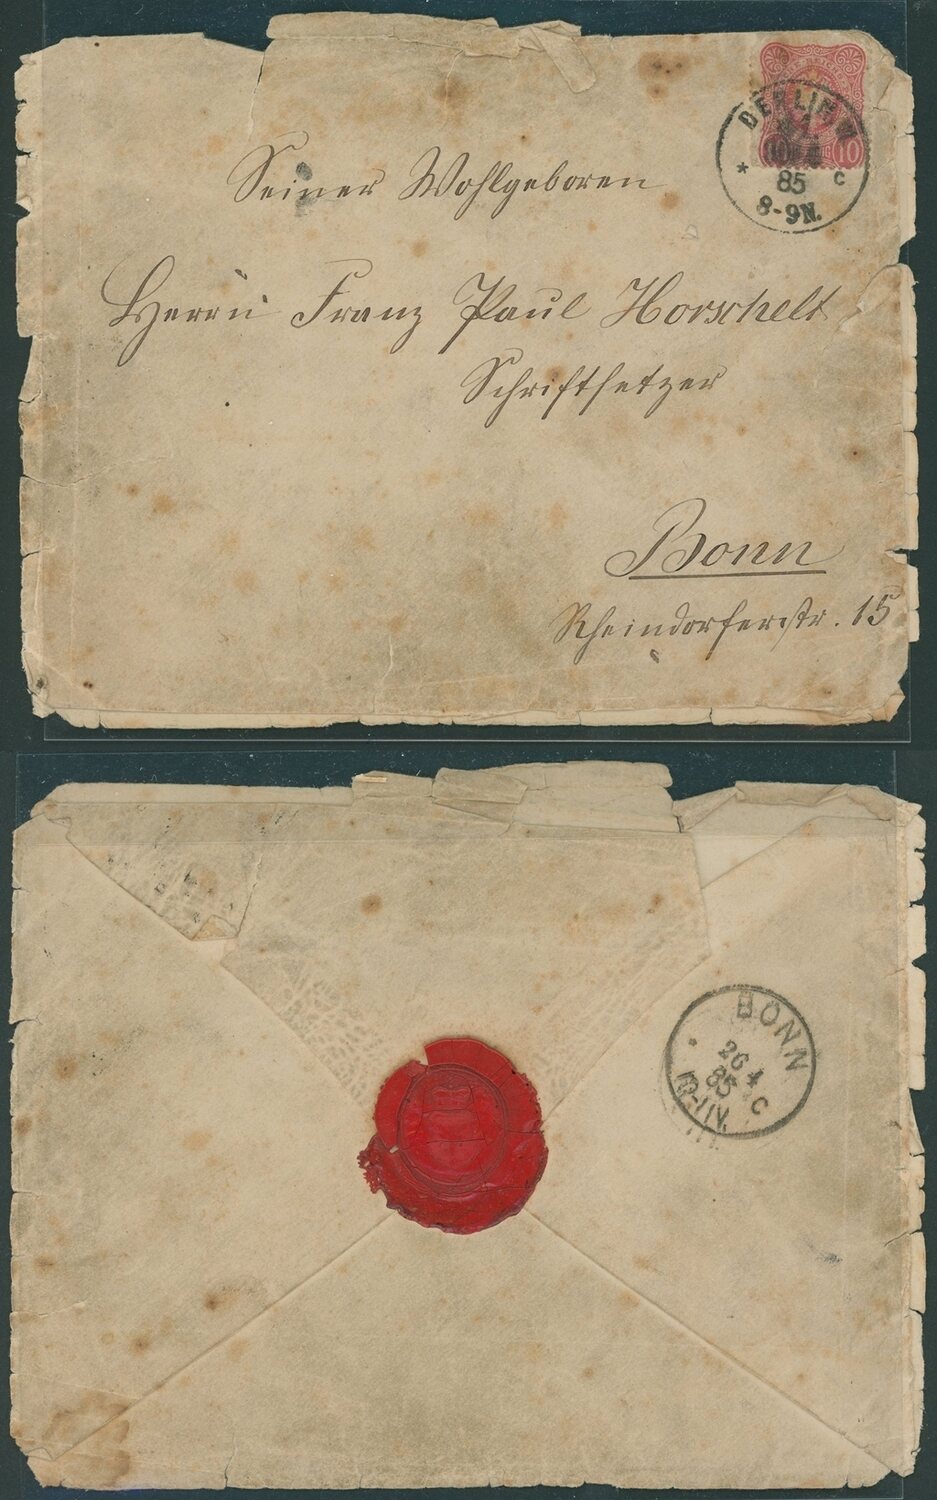 Seiner Wohlgeboren
Herrn Franz Paul Horschelt
Schriftsetzer
Bonn
Rheindorferstr. 15
BERLIN W
85
* c
8-9N.
10
BONN
26 4
85 C
10-11V.